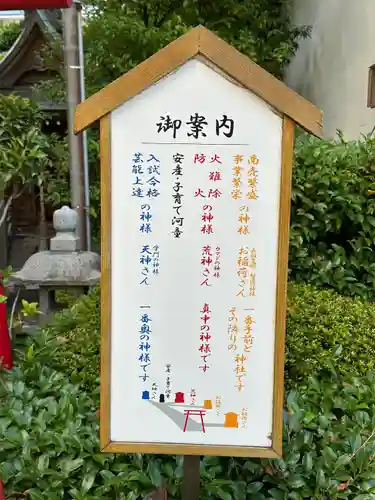 御案内
商売繁盛
事業繁栄
の神様
お稲荷さん
一番手前と
その隣りの神社です
火難除
防火
の神様
カマドの神様
荒神さん
真中の神様です
安産・子育て河童
入試合格
芸能上達
の神様
学門の神様
天神さん
一番奥の神様です